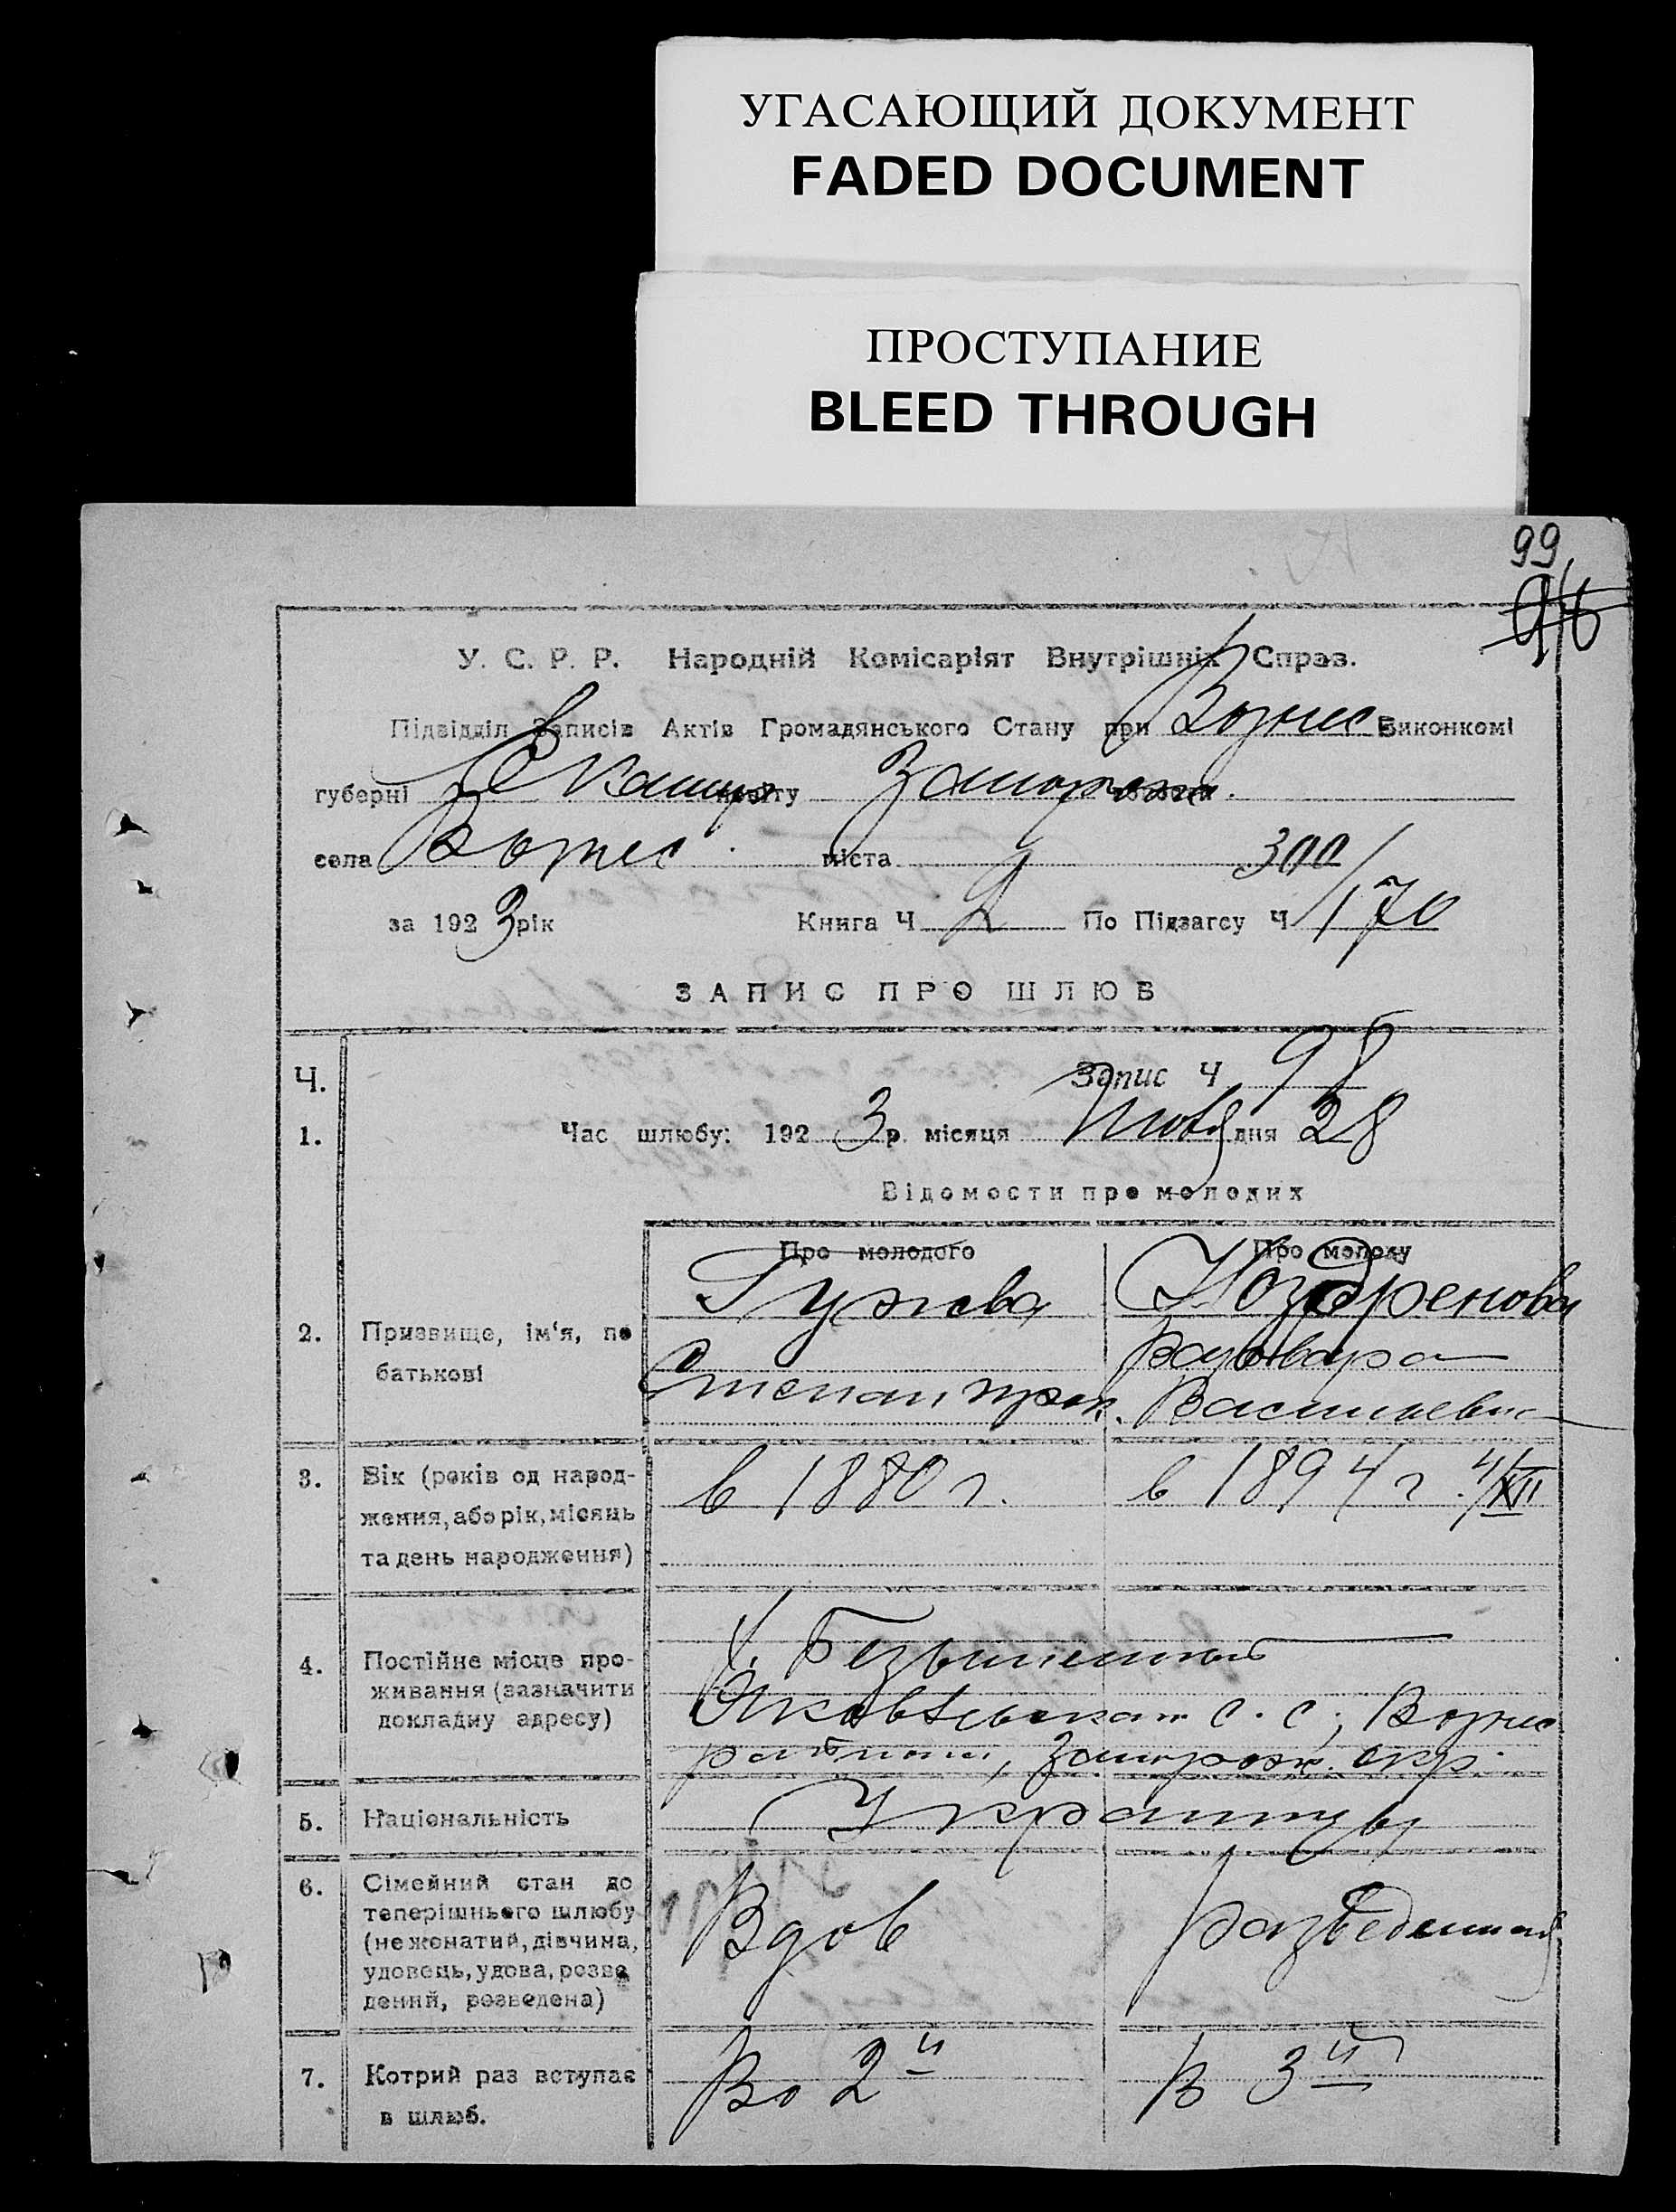 УГАСАЮЩИЙ ДОКУМЕНТ
FADED DOCUMENT
ПРОСТУПАНИЕ
BLEED THROUGH
99
У. С. Р. Р. Народній Комісаріят Внутрішніх Справ.
Підвідділ Записів Актів Громадянського Стану при Вознес Виконкомі
губерні Екатер повіту Запорож
села Вознес міста 300/
за 1923 рік Книга Ч 2 По Підзагсу Ч 170
ЗАПИС ПРО ШЛЮБ
Ч. Запис Ч 98
1. Час шлюбу: 1923 р. місяця дня 28
Відомости про молодих
Про молодого Про молоду
Гужва Ноздренова
2. Призвище, ім'я, по батькові
Варвара
Степан Прок. Васильевна
3. Вік (років од народ-
ження, або рік, місяць
та день народження)
в 1880 г. в 1894 г. 4/XII
4. Постійне місце про-
живання (зазначити
докладну адресу)
с. с., Вознес
района, Запорож. окр.
5. Національність Украинцы
6. Сімейний стан до
теперішнього шлюбу
(не жонатий, дівчина,
удовець, удова, розве
дений, розведена)
Вдов разведенная
7. Котрий раз вступає
в шлюб.
Во 2й В 3й